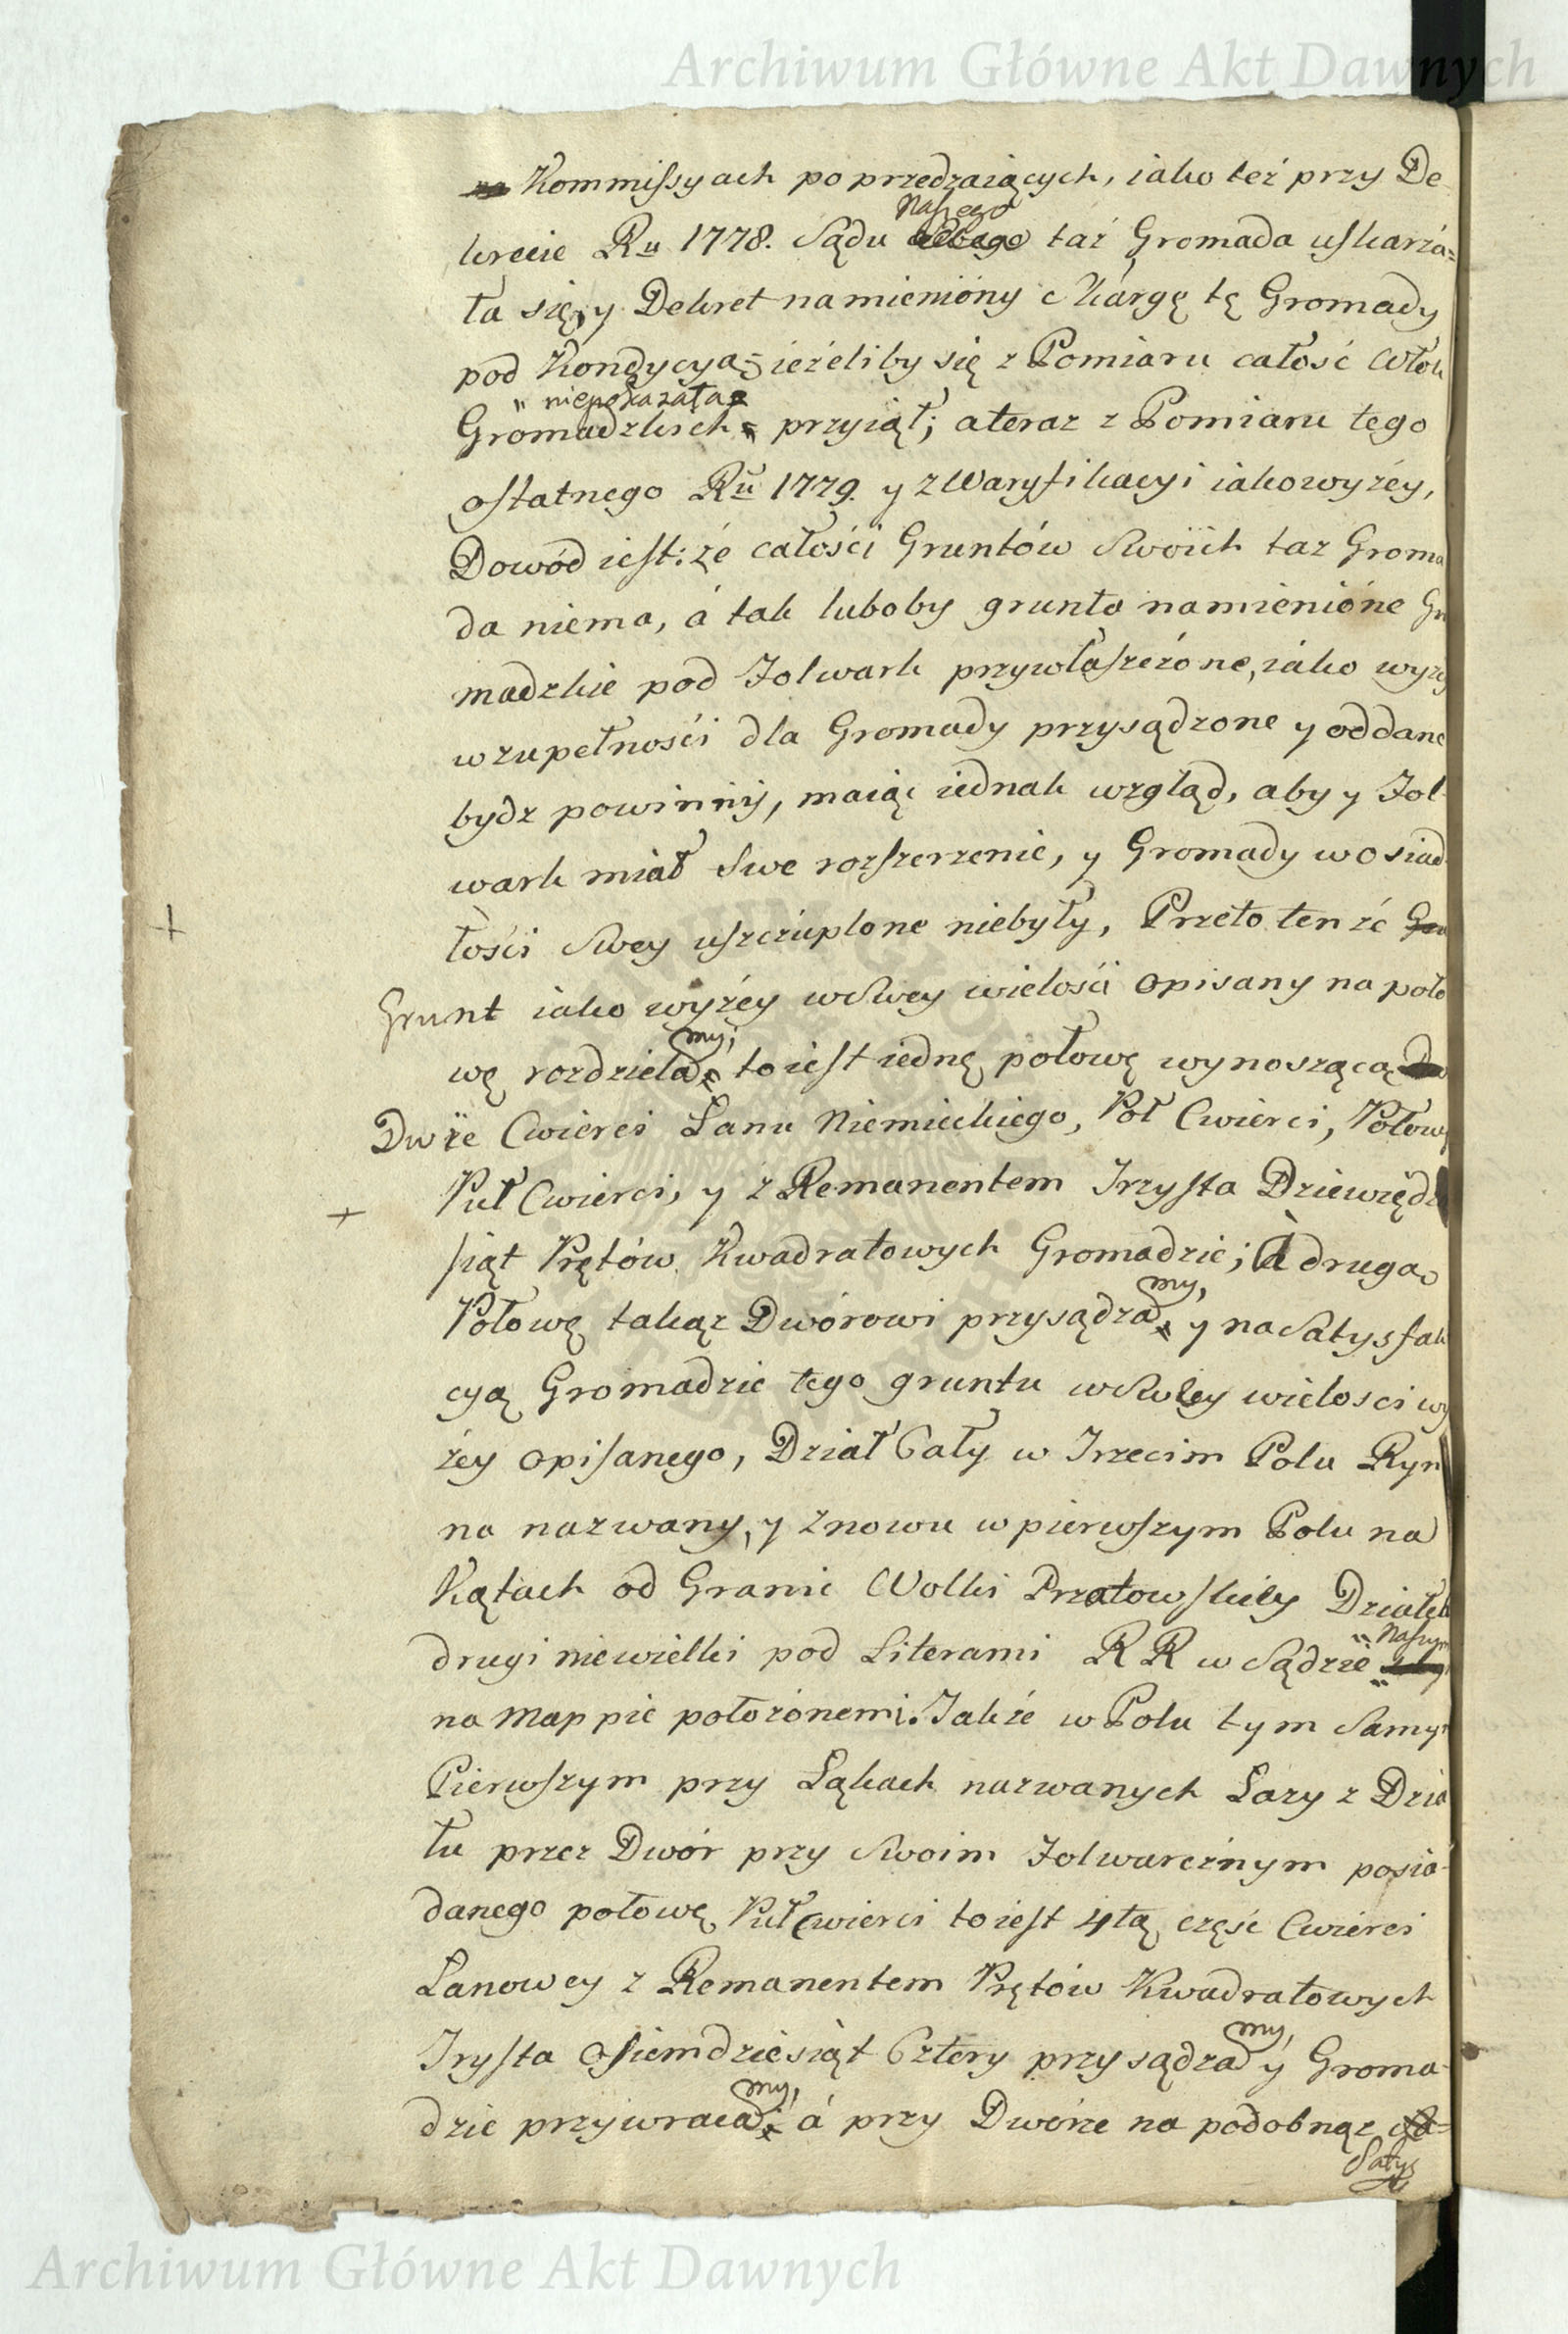 Archiwum Główne Akt Dawnych
Kommissyach poprzedzaiących, iako też przy De
krecie Ru 1778. Sądu Naszego taż Gromada uskarża=
ła się, y Dekret namieniony skargę tę Gromady
pod Kondycyą, ieżeliby się z Pomiaru całość Włok
Gromadzkich niepokazała przyiął; a teraz z Pomiaru tego
ostatnego Ru 1779. y z Waryfikacyi iako wyżey,
Dowód iest: że całości Gruntów Swoich taz Groma
da niema, á tak luboby grunta namienióne Gro
madzkie pod Folwark przywłaszczóne, iako wyży
w zupełności dla Gromady przysądzone y oddane
bydz powinny, maiąc iednak wzgląd, aby y Fol-
wark miał Swe rozszerzenie, y Gromady w osiad
łości Swey uszczuplone niebyły, Przeto tenże
Grunt iako wyżey w Swey wielości opisany na poło
wę rozdzielamy; to iest iednę połowę wynoszącą
Dwie Cwierci Łanu Niemieckiego, Poł Cwierci, Połowę
Puł Cwierci, y z Remanentem Trzysta Dziewiędz
siąt Prętów Kwadratowych Gromadzie; À drugą
Połowę takąż Dworowi przysądzamy, y na Satysfak
cyą Gromadzie tego gruntu w Swey wielosci wy
żey opisanego, Dział Cały w Trzecim Polu Ryn
na nazwany, y znowu w pierwszym Polu na
Kątach od Granic Wolki Przatowskiey Działek
drugi niewielki pod Literami RR w Sądzie Naszym
na Mappie położónemi. Jakże w Polu tym Samym
Pierwszym przy Łąkach nazwanych Łazy z Dzia
łu przez Dwór przy Swoim Folwarcznym posia-
danego połowę Puł Cwierci to iest 4tą część Cwierci
Łanowey z Remanentem Prętów Kwadratowych
Trysta Osiemdziesiąt Cztery przysądzamy, y Groma-
dzie przywracamy, á przy Dworze na podobnąż
Satys
Archiwum Główne Akt Dawnych